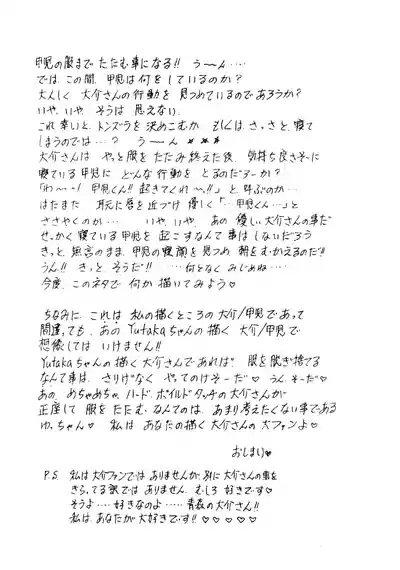 甲児の服まで たたむ事になる!! うーん‥‥
では、この間、甲児は何をしているのか?
大人しく 大介さんの行動を 見つめているのであろうか?
いや、いや、そうは 思えない。
これ幸いと、トンズラを決めこむか もしくは、さっさと、寝て
しまうのでは…? うーん
大介さんは やっと服を たたみ終えた後、気持ち良さそーに
寝ている甲児に どんな行動を とるのだろーか?
「わ〜〜! 甲児くん!! 起きてくれ〜!!」と 叫ぶのか…
はたまた 耳元に唇を近づけ 優しく「…甲児くん…」と
ささやくのか… いや、いや、あの 優しい大介さんの事だ
せっかく寝ている甲児を 起こすなんて事は しないだろう
きっと、無言のまま、甲児の寝顔を見つめ 朝をむかえるのだ!!
うん!! きっと そうだ!! …何となく みじめね…
今度、このネタで 何か描いてみよう♡
ちなみに、これは 私の描くところの 大介/甲児であって
間違っても、あの Yutakaちゃんの描く 大介/甲児で
想像しては いけません!!
Yutakaちゃんの描く 大介さんであれば 服を脱ぎ捨てる
なんて事は さりげなく やってのけそーだ♡ うん、そーだ♡
あの、めちゃめちゃ、ハード、ボイルドタッチの大介さんが
正座して 服をたたむ、なんてのは、あまり考えたくない事である
ゆ、ちゃん♡ 私は あなたの描く大介さんの 大ファンよ♡
おしまい♡
P.S. 私は大介ファンでは ありませんが、別に大介さんの事を
きらってる訳では ありません。むしろ 好きです♡
そうよ‥‥好きなのよ‥‥‥青森の大介さん!!
私は、あなたが 大好きです!! ♡♡♡♡♡